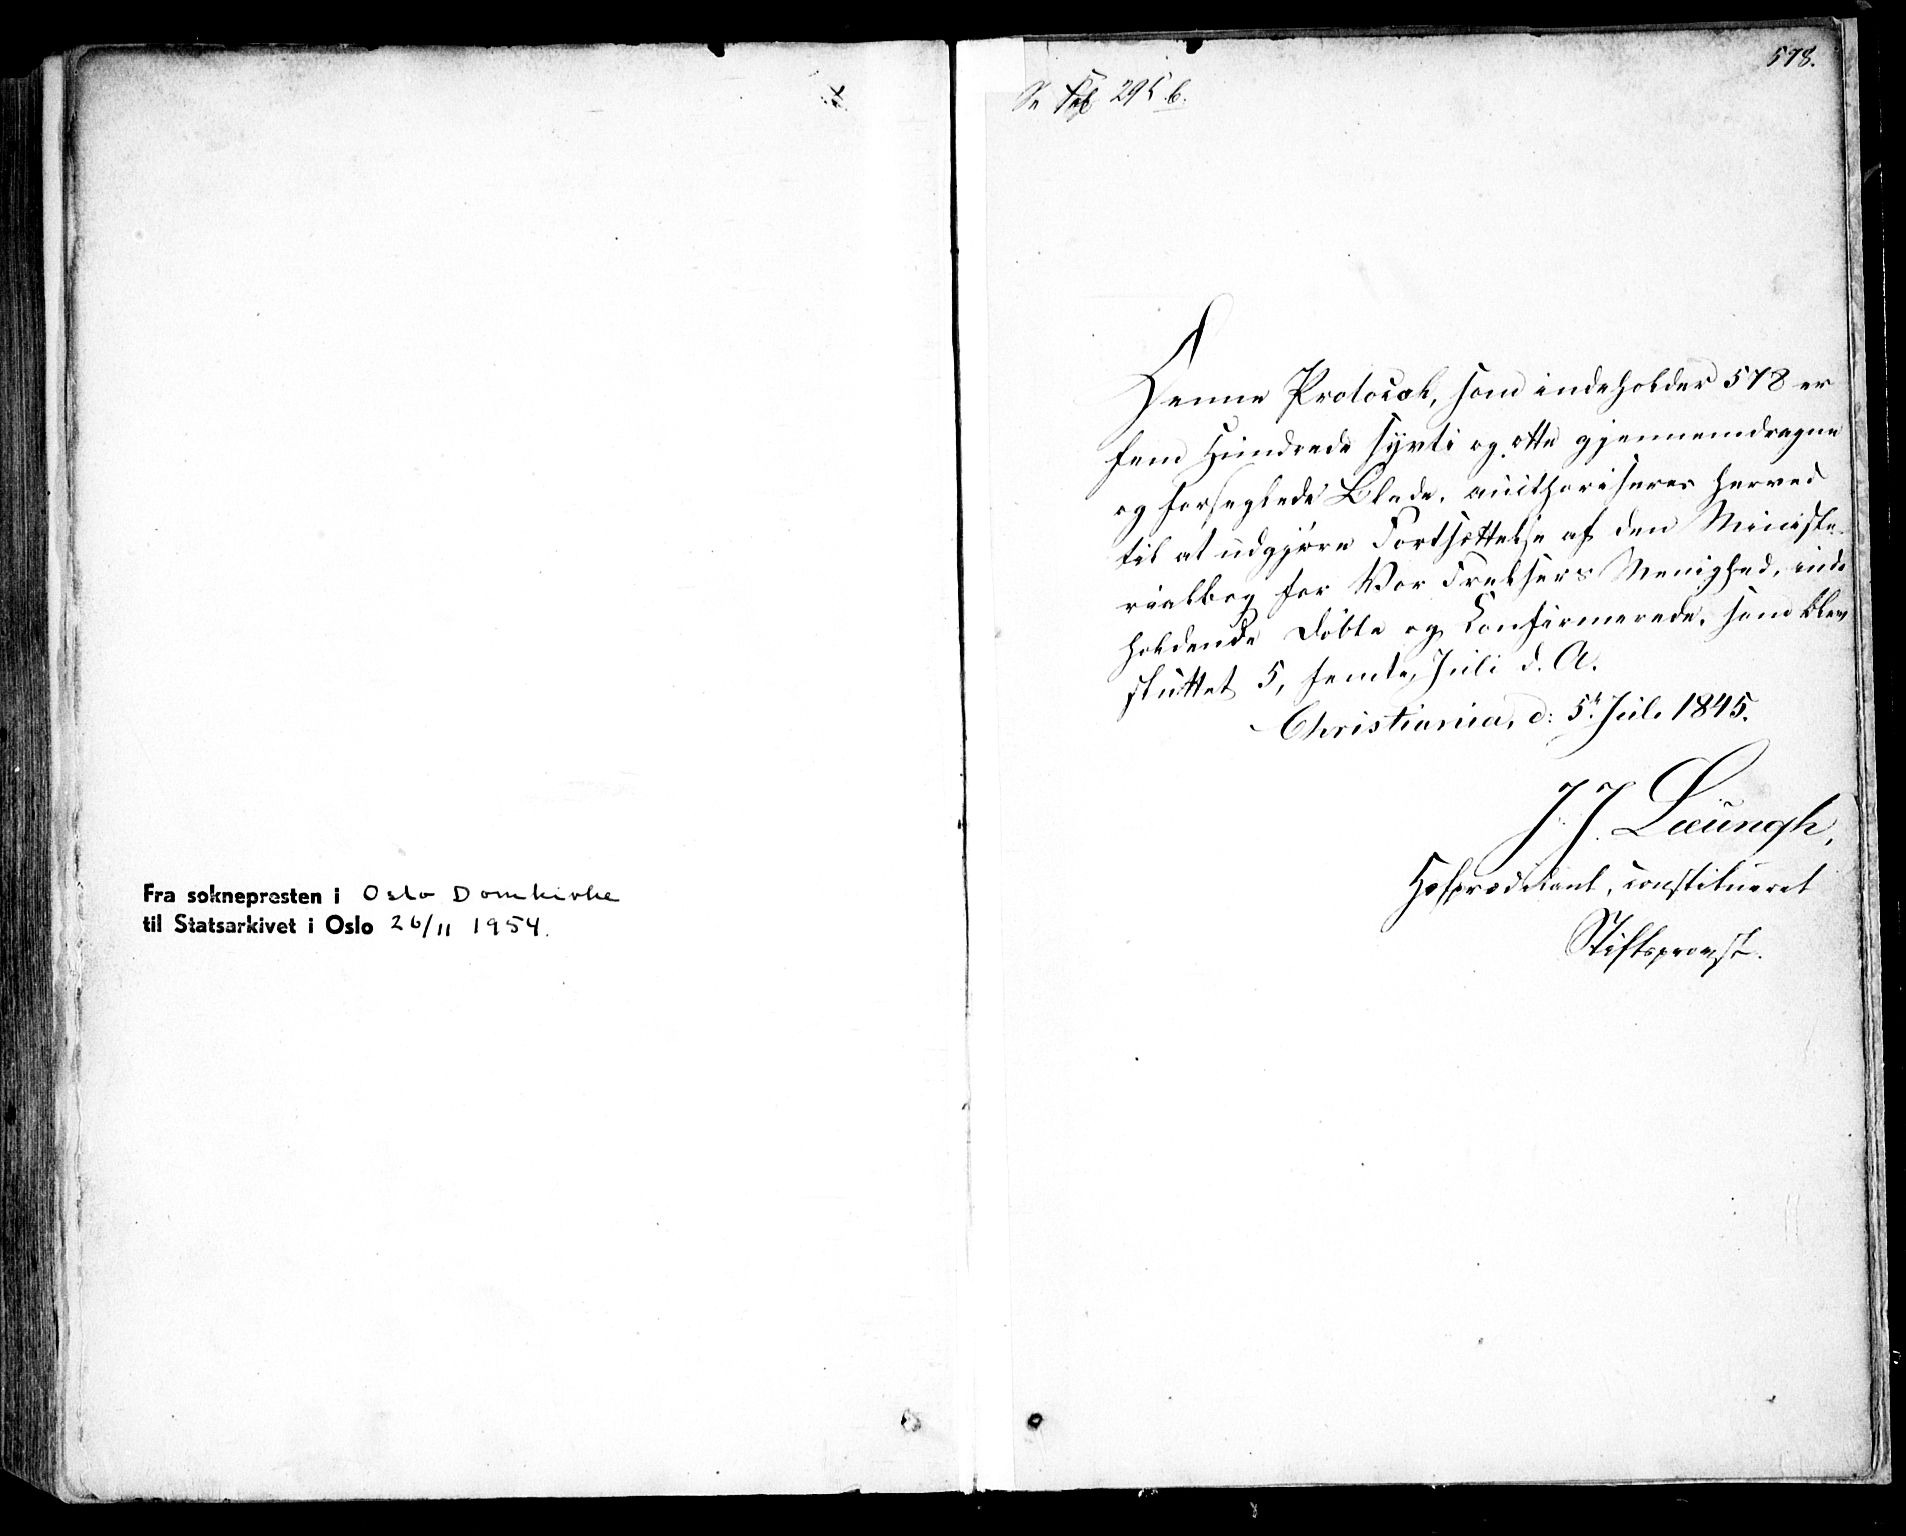 Fra sokneprestenen i Oslo Domkirke
til Statsarkivet i Oslo 26/11 1954.
578.
Se Fol 295 b.
Denne Protocol, som indeholder 578 er
fem Hundrede syvti og otte gjennemdragne
og forseglede Blade, aucthoriseres herved
til at udgjøre Fortsættelse af den Ministe-
rialbog for Vor Frelsers Menighed, inde
holdende Döbte og Confirmerede, som blev
sluttet 5, femte, Juli d. A.
Christiania, d: 5t Juli 1845.
J J Læungh,
Hofprædikant, constitueret
Stiftsprovst.